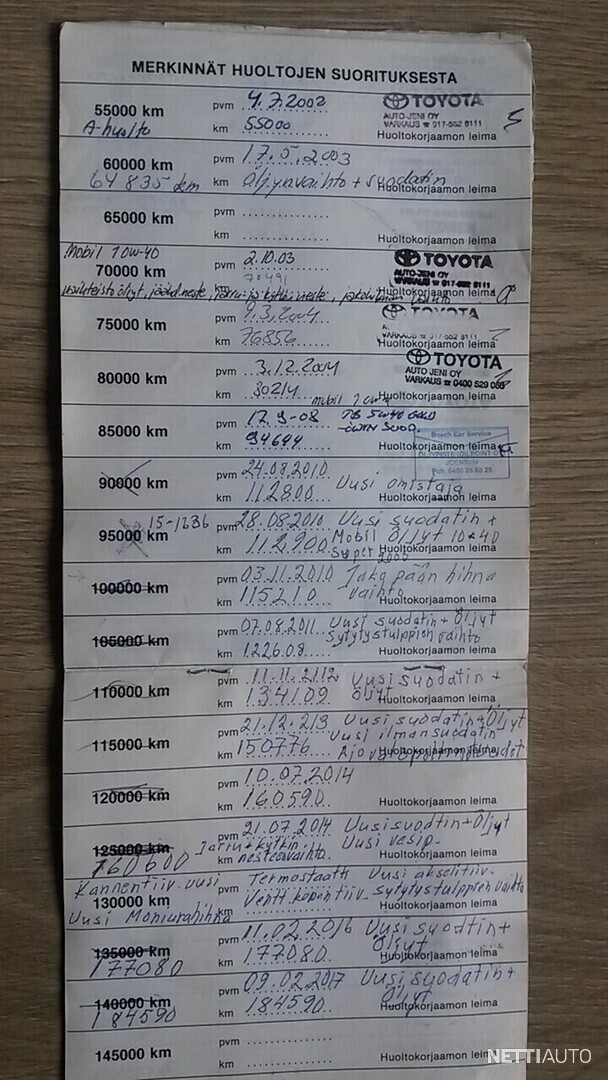 MERKINNÄT HUOLTOJEN SUORITUKSESTA
55000 km pvm 4.7.2002 TOYOTA
AUTO-JENI OY
VARKAUS ☎ 017-552 8111
A-huolto km 55000 Huoltokorjaamon leima
60000 km pvm 17.5.2003
64 835 km Öljynvaihto + suodatin Huoltokorjaamon leima
65000 km pvm
km Huoltokorjaamon leima
Mobil 10W-40 pvm 2.10.03 TOYOTA
70000 km AUTO-JENI OY
km VARKAUS ☎ 017-552 8111
Huoltokorjaamon leima
75000 km pvm 9.3.2004 TOYOTA
km 76856 Huoltokorjaamon leima
80000 km pvm 3.12.2004 TOYOTA
AUTO JENI OY
VARKAUS ☎ 0400 529 055
km 80214 Huoltokorjaamon leima
85000 km pvm 17.9-08 5W40 GOLD
Bosch Car Service
km 94644 SUOD.
JOENSUU
Huoltokorjaamon leima
90000 km pvm 24.08.2010
km 112800 Uusi omistaja
Huoltokorjaamon leima
15-1236 pvm 28.08.2010 Uusi suodatin +
95000 km km 112900 Mobil Öljyt 10W40
Super 2000 Huoltokorjaamon leima
100000 km pvm 03.11.2010 Jakopään hihna
km 115210 vaihto Huoltokorjaamon leima
105000 km pvm 07.08.2011 Uusi suodatin + Öljyt
Sytytystulppien vaihto
km 122608 Huoltokorjaamon leima
110000 km pvm 11.11.2112 Uusi suodatin +
km 134109 Öljyt Huoltokorjaamon leima
115000 km pvm 21.12.213 Uusi suodatin+Öljyt
Uusi ilmansuodatin
km 150776 Huoltokorjaamon leima
120000 km pvm 10.07.2014
km 160590 Huoltokorjaamon leima
125000 km pvm 21.07.2014 Uusi suodtin+Öljyt
160600 Jarru+kytkin nesteenvaihto. Uusi vesip.
Huoltokorjaamon leima
Kannentiiv. uusi Termostaatti Uusi akselitiiv.
130000 km pvm Ventt.kopen tiiv. Sytytystulppien vaihto
Uusi Moniurahihna km Huoltokorjaamon leima
135000 km pvm 11.02.2016 Uusi suodtin+
Öljyt
177080 km 177080 Huoltokorjaamon leima
140000 km pvm 09.02.2017 Uusi suodatin+
Öljyt
184590 km 184590 Huoltokorjaamon leima
145000 km pvm
km Huoltokorjaamon leima
NETTIAUTO